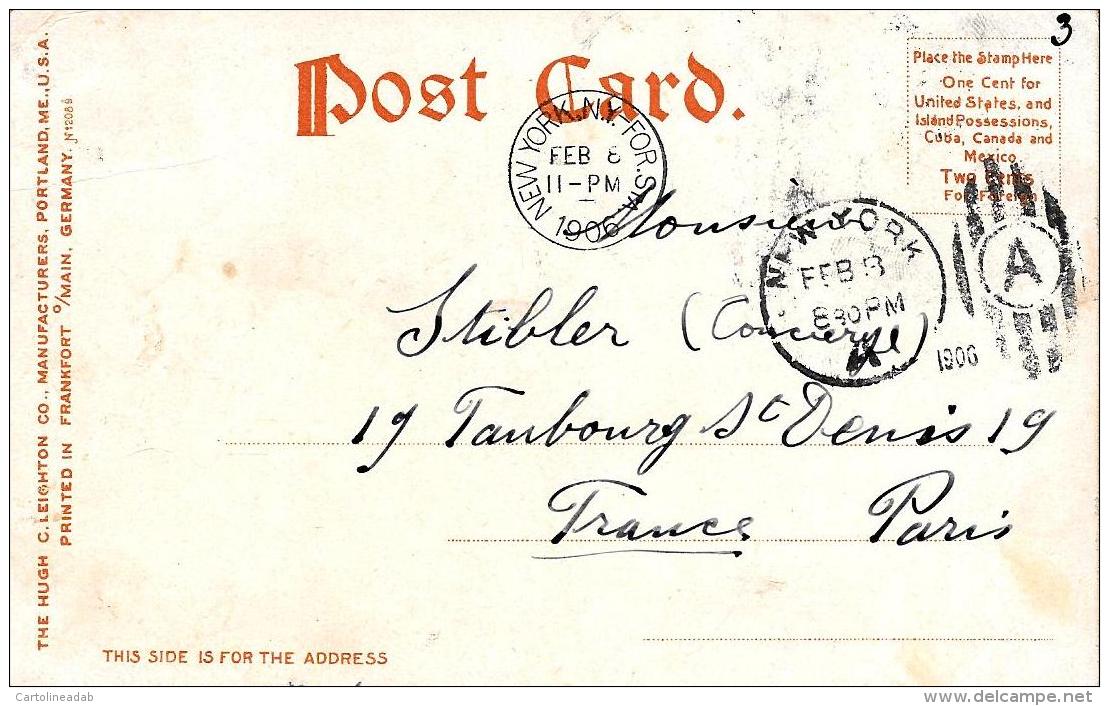 3
Post Card.
Place the Stamp Here
One Cent for
United States, and
Island Possessions,
Cuba, Canada and
Mexico.
Two Cents
For Foreign
NEW YORK, N.Y. FOR. STA.
FEB 8
11-PM
1906
NEW YORK
FEB 8
830PM
1906
A
Monsieur
Stibler (Concierge)
19 Faubourg St Denis 19
France Paris
THE HUGH C. LEIGHTON CO., MANUFACTURERS, PORTLAND, ME., U.S.A.
PRINTED IN FRANKFORT O/MAIN, GERMANY. No 2089
THIS SIDE IS FOR THE ADDRESS
Cartolineadab
delcampe.net